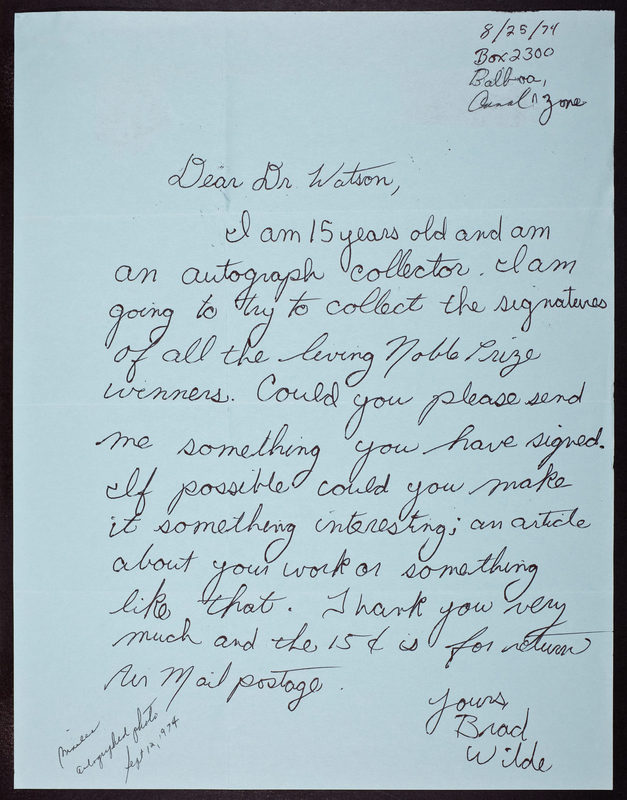 8/25/74
Box 2300
Balboa,
Canal Zone
Dear Dr Watson,
I am 15 years old and am
an autograph collector. I am
going to try to collect the signatures
of all the living Noble Prize
winners. Could you please send
me something you have signed.
If possible could you make
it something interesting; an article
about your work or something
like that. Thank you very
much and the 15¢ is for return
Air Mail postage.
Yours
Brad
Wilde
autographed photo
Sept 12, 1974